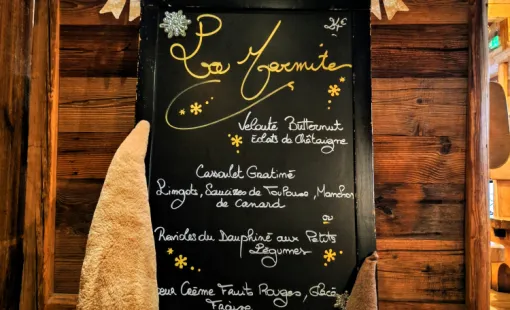 24€
La Marmite
Velouté Butternut
Eclats de Châtaigne
Cassoulet Gratiné
Lingots, Saucisse de Toulouse, Manchon
de Canard
ou
Ravioles du Dauphiné aux Petits
Légumes
Crème Fruits Rouges, Glace
Fraise